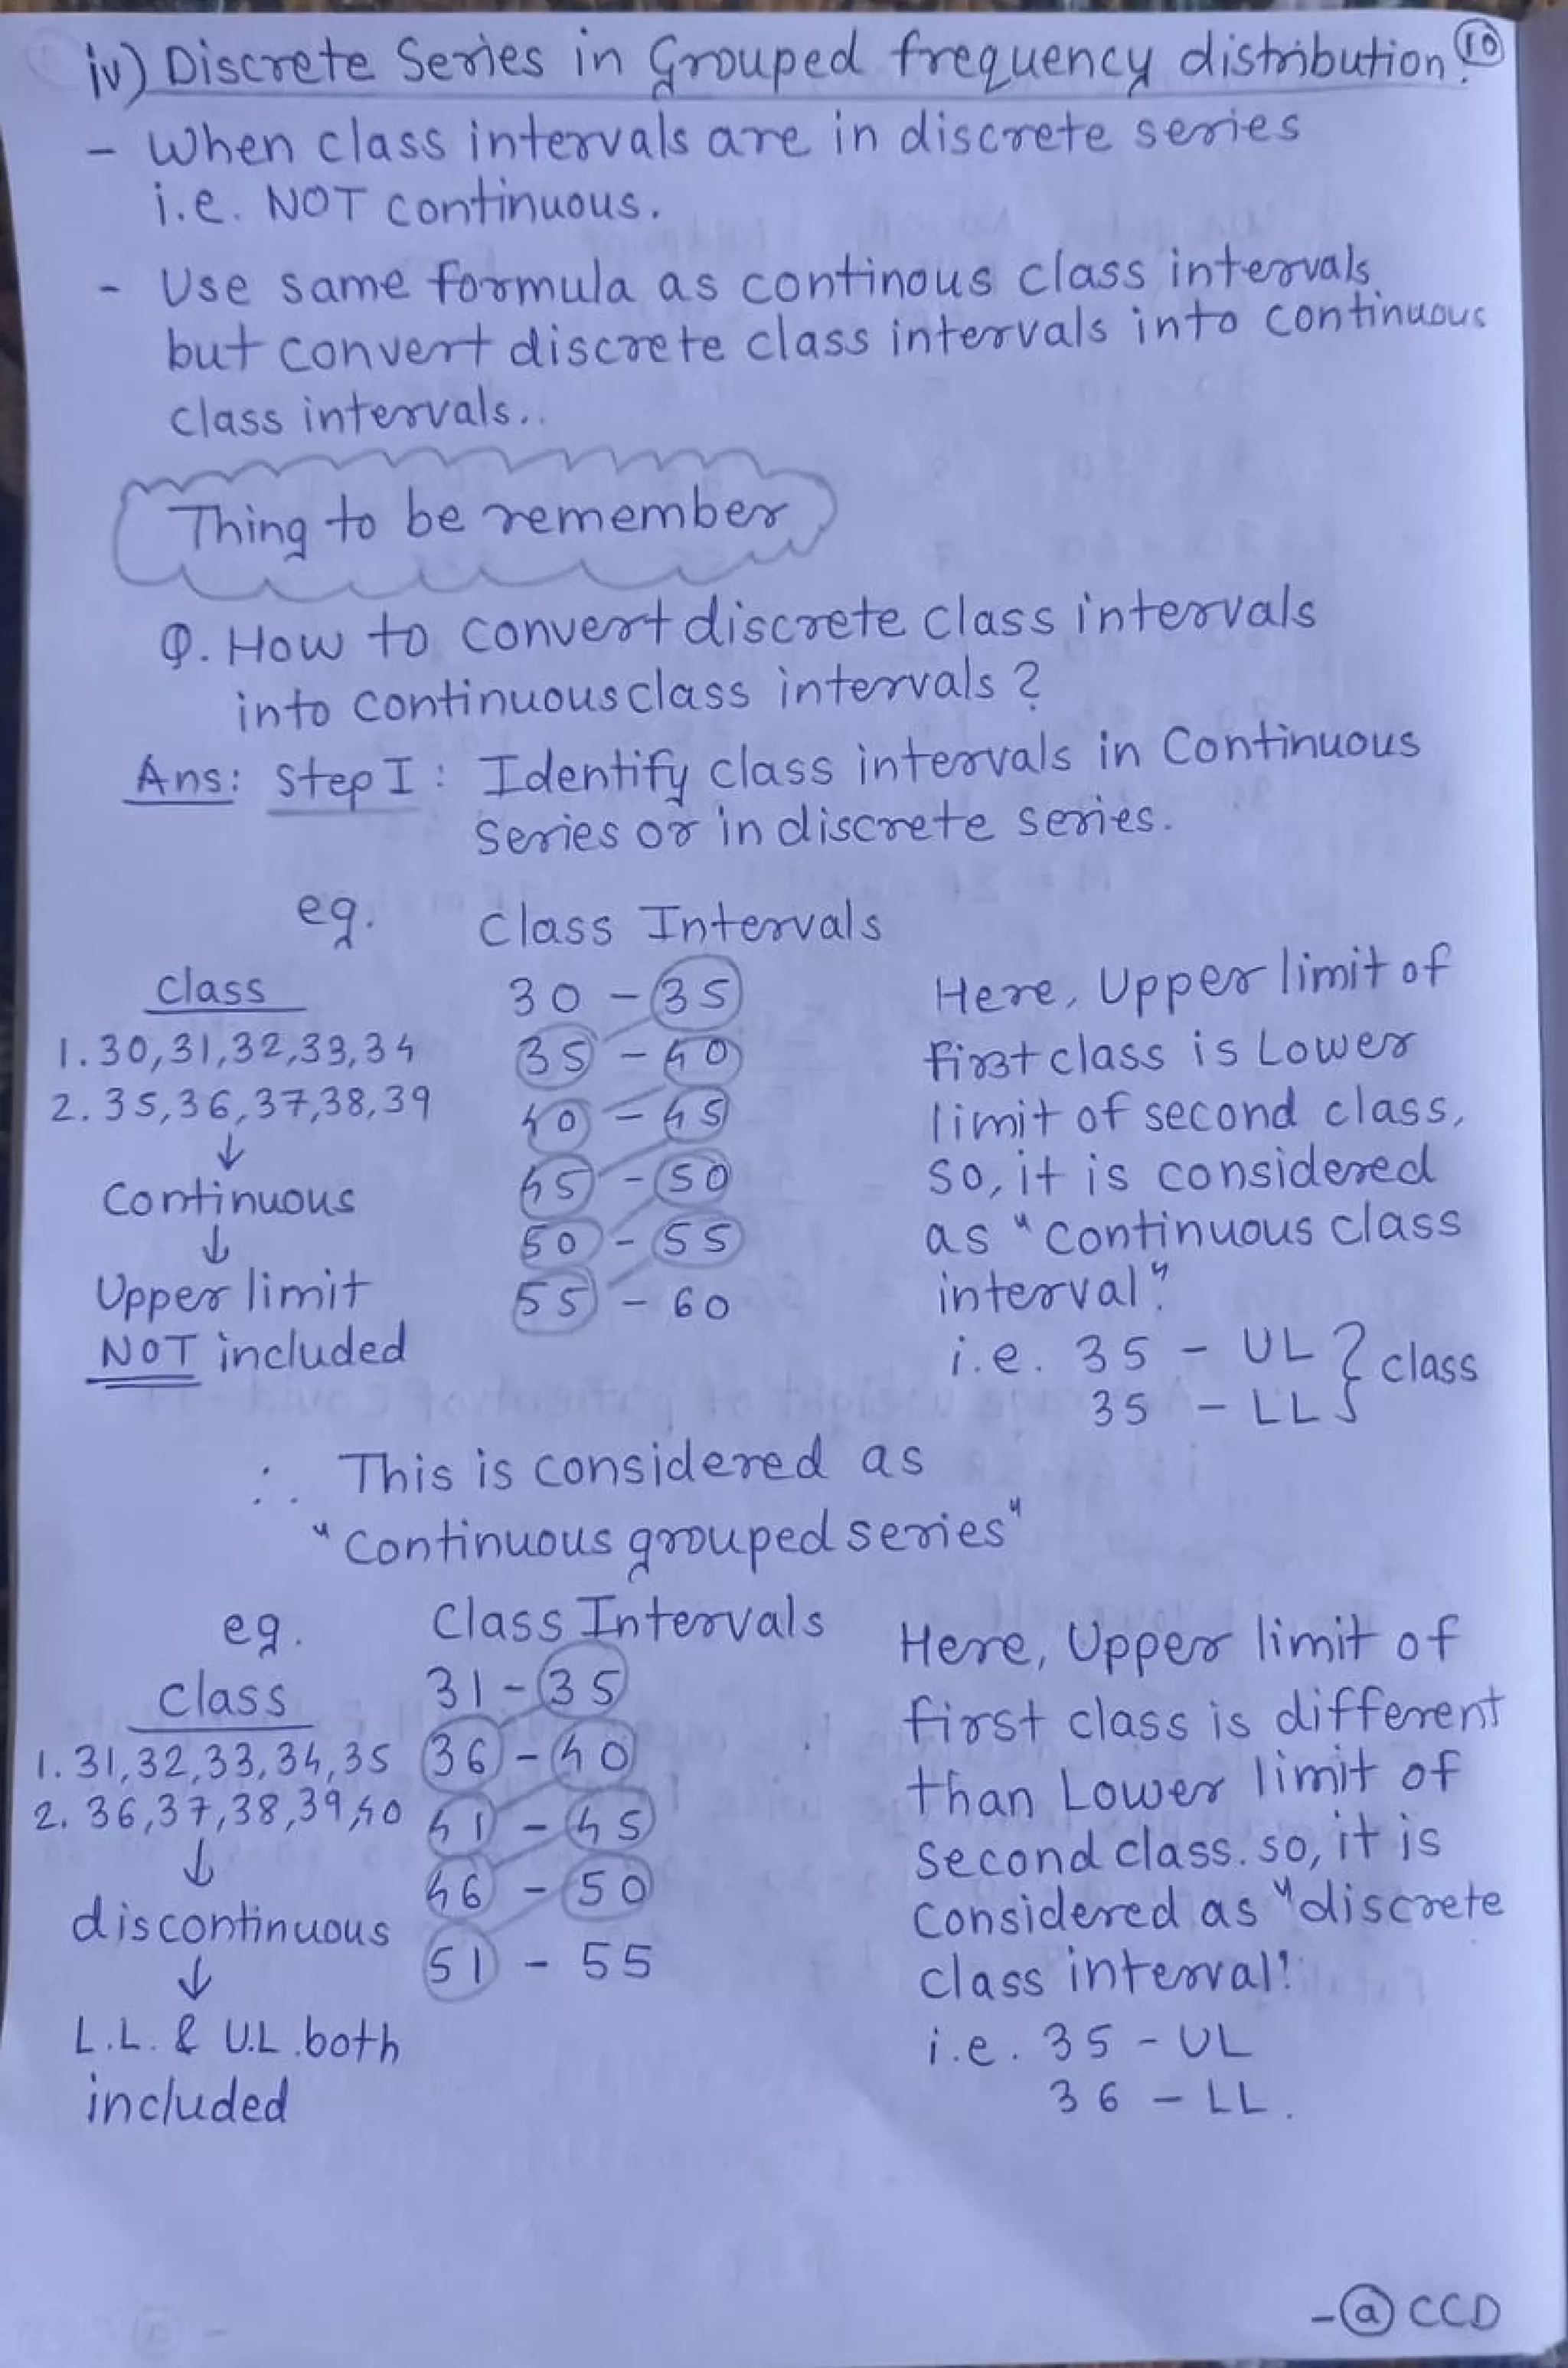 iv) Discrete Series in Grouped frequency distribution. 10
- When class intervals are in discrete series
i.e. NOT continuous.
- Use same formula as continous class intervals
but convert discrete class intervals into continuous
class intervals..
Thing to be remember
Q. How to convert discrete class intervals
into continuous class intervals ?
Ans: Step I : Identify class intervals in Continuous
Series or in discrete series.
eg. Class Intervals
Class
30 - 35
1. 30,31,32,33,34
35 - 40
2. 35,36,37,38,39
40 - 45
↓
Continuous
45 - 50
↓
50 - 55
Upper limit
55 - 60
NOT included
Here, Upper limit of
first class is Lower
limit of second class,
so, it is considered
as "continuous class
interval".
i.e. 35 - UL } class
35 - LL
∴ This is considered as
"Continuous grouped series"
eg. Class Intervals
Class
31 - 35
1. 31,32,33,34,35
36 - 40
2. 36,37,38,39,40
41 - 45
↓
46 - 50
discontinuous
51 - 55
↓
L.L. & U.L. both
included
Here, Upper limit of
first class is different
than Lower limit of
second class. so, it is
considered as "discrete
class interval".
i.e. 35 - UL
36 - LL.
- @ CCD